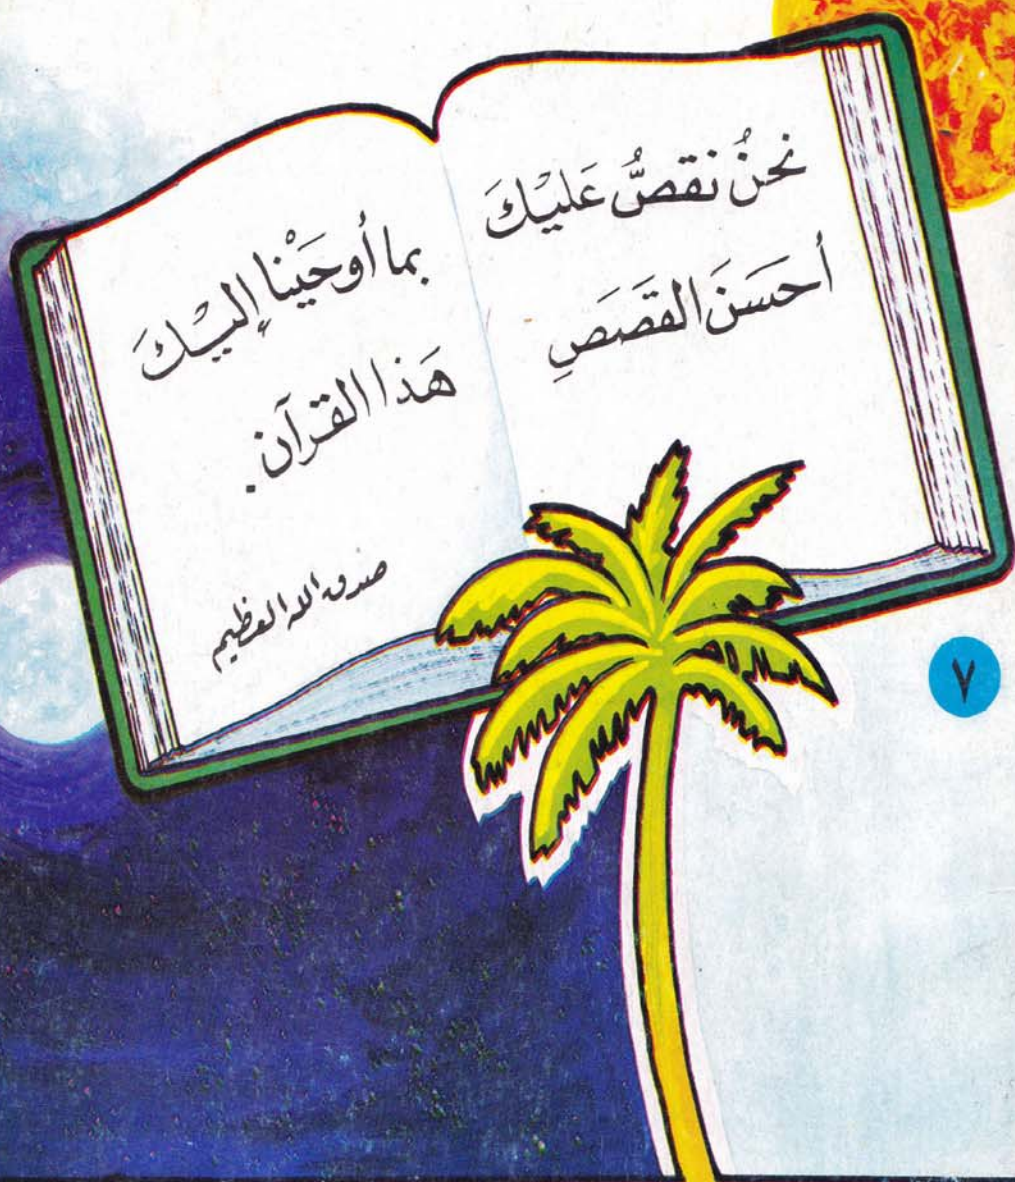 نحنُ نقصُّ عَليْكَ
أحسَنَ القَصَصِ
بما أوحَيْنا إليْكَ
هَذا القرآن.
صدق الله العظيم
٧